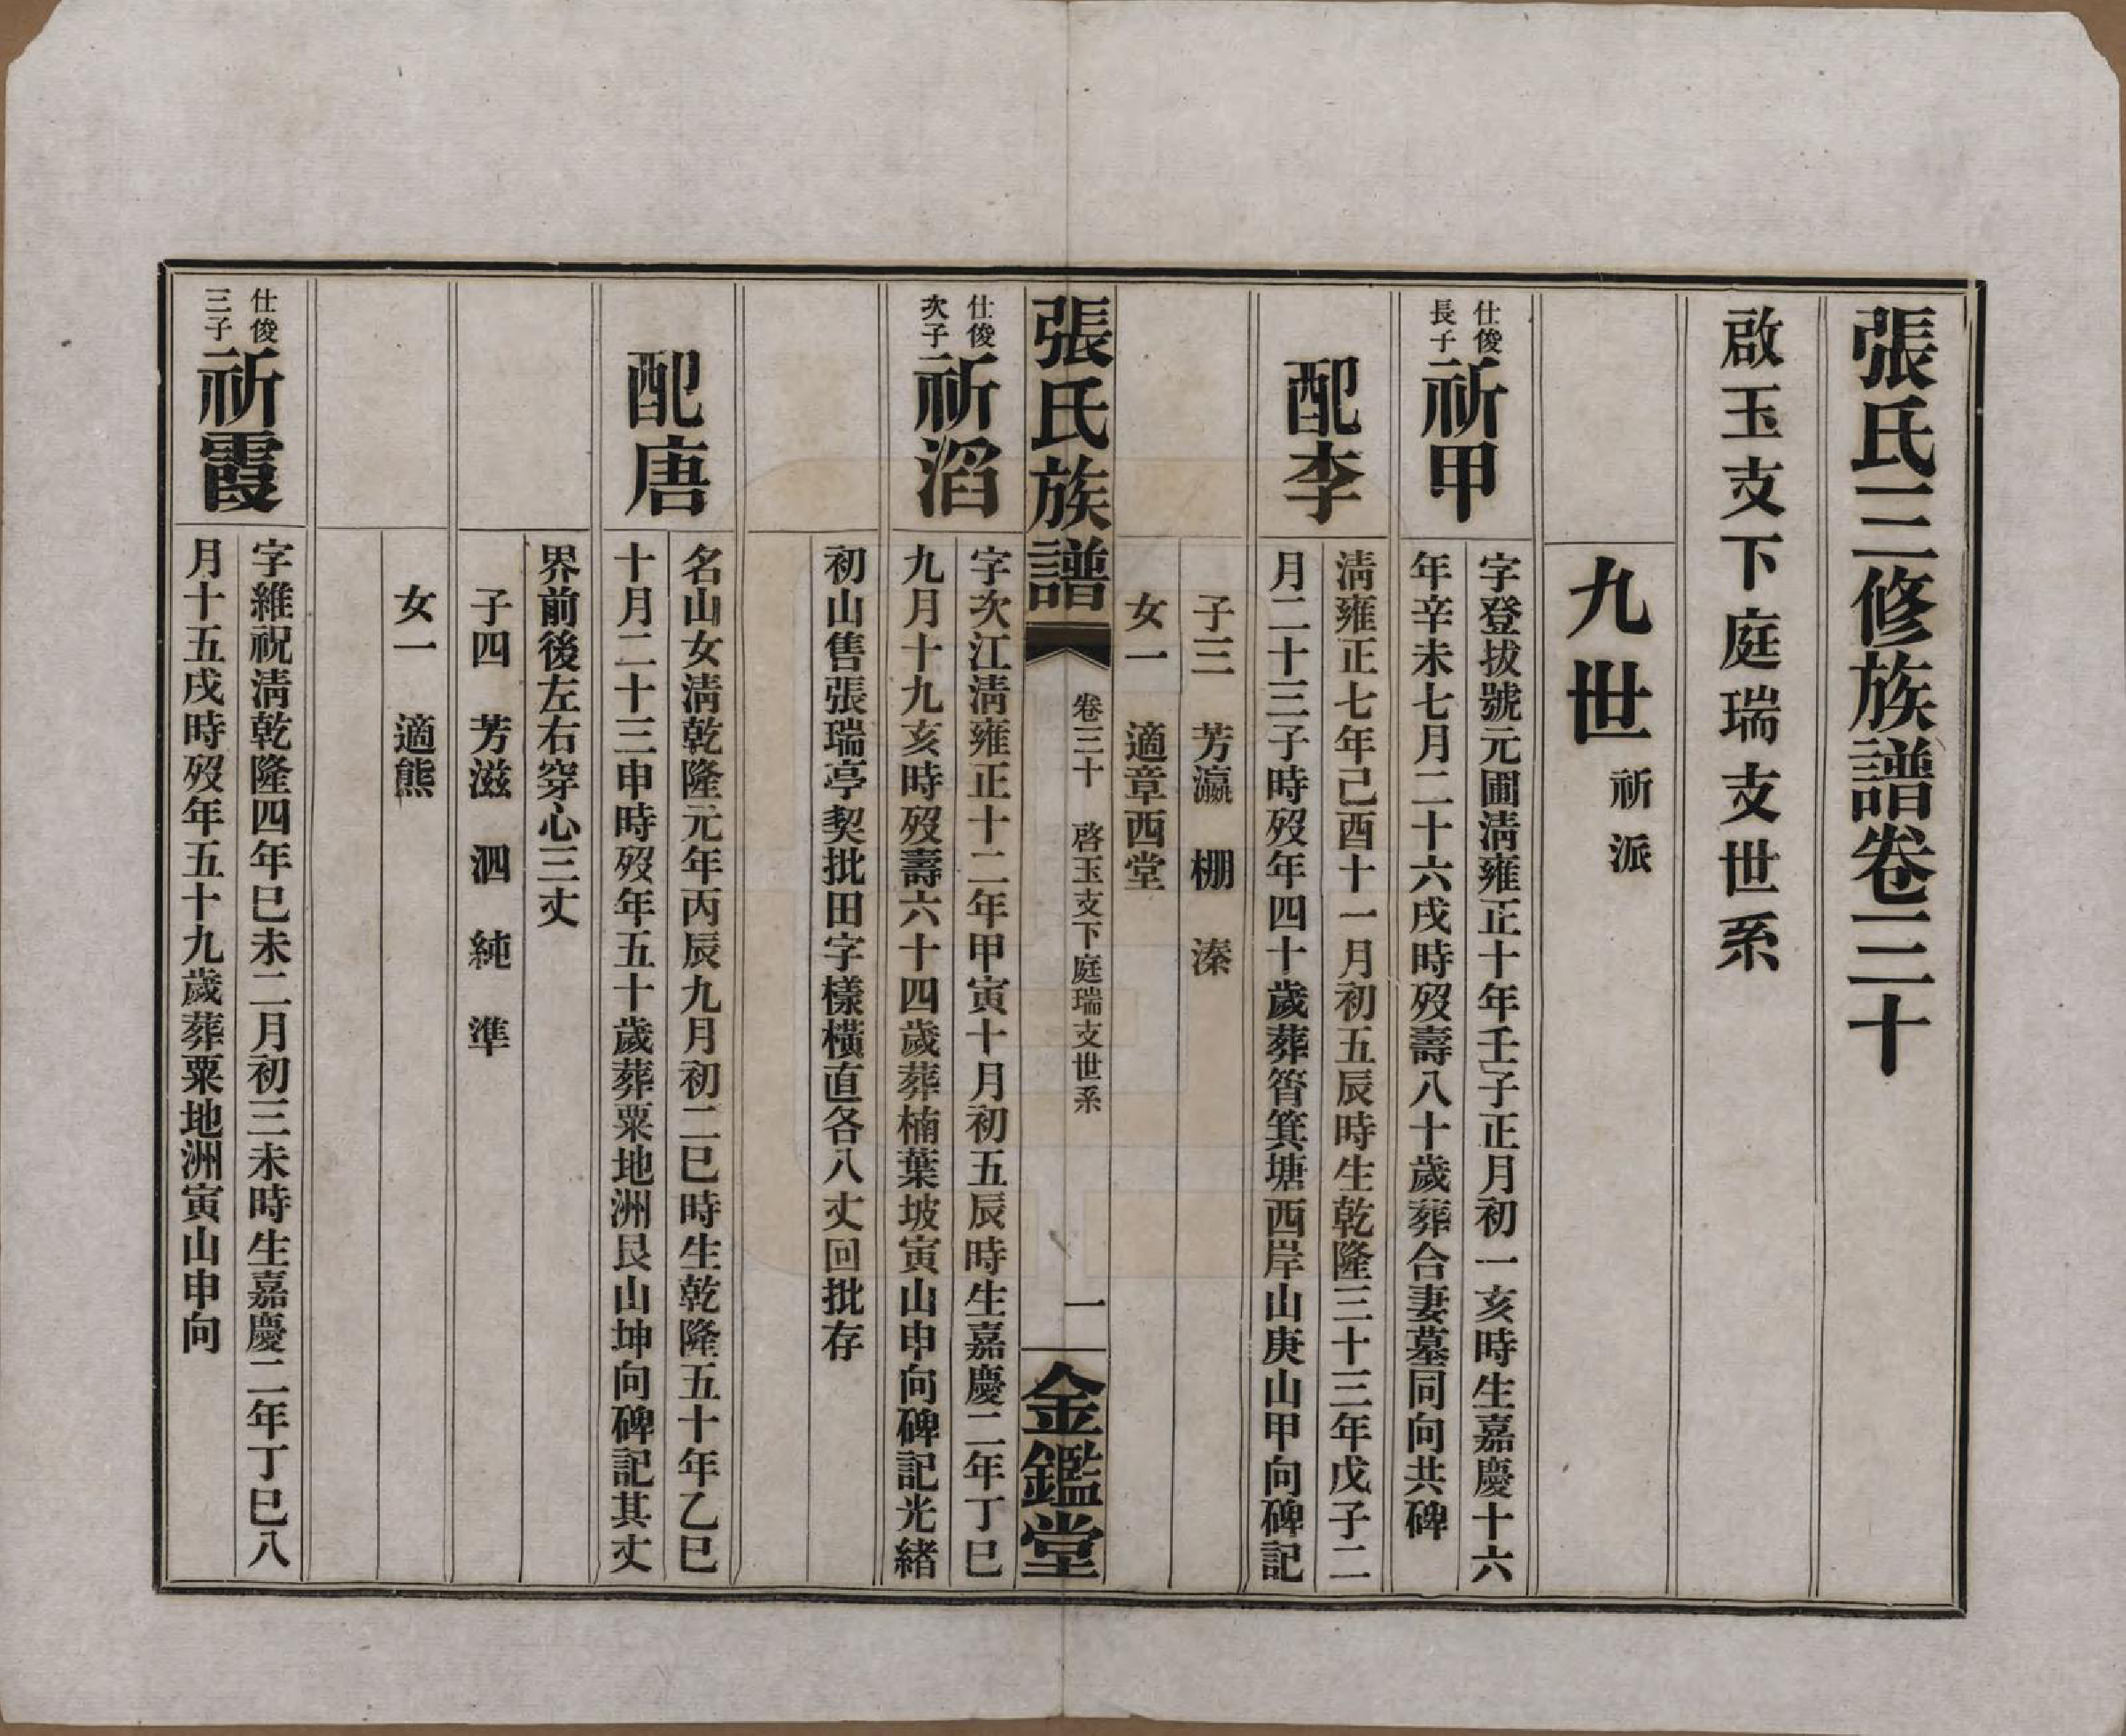 張氏三修族譜卷三十
啟玉支下庭瑞支世系
九世 祈派
仕俊長子 祈甲
字登拔號元圃淸雍正十年壬子正月初一亥時生嘉慶十六
年辛未七月二十六戌時歿壽八十歲葬合妻墓同向共碑
配李
淸雍正七年己酉十一月初五辰時生乾隆三十三年戊子二
月二十三子時歿年四十歲葬筲箕塘西岸山庚山甲向碑記
子三 芳瀛 棚 溱
女一 適章西堂
張氏族譜 卷三十 啓玉支下庭瑞支世系 一 金鑑堂
仕俊次子 祈滔
字次江淸雍正十二年甲寅十月初五辰時生嘉慶二年丁巳
九月十九亥時歿壽六十四歲葬楠葉坡寅山申向碑記光緒
初山售張瑞亭契批田字樣橫直各八丈回批存
配唐
名山女淸乾隆元年丙辰九月初二巳時生乾隆五十年乙巳
十月二十三申時歿年五十歲葬粟地洲艮山坤向碑記其丈
界前後左右穿心三丈
子四 芳滋 泗 純 準
女一 適熊
仕俊三子 祈霞
字維祝淸乾隆四年巳未二月初三未時生嘉慶二年丁巳八
月十五戌時歿年五十九歲葬粟地洲寅山申向